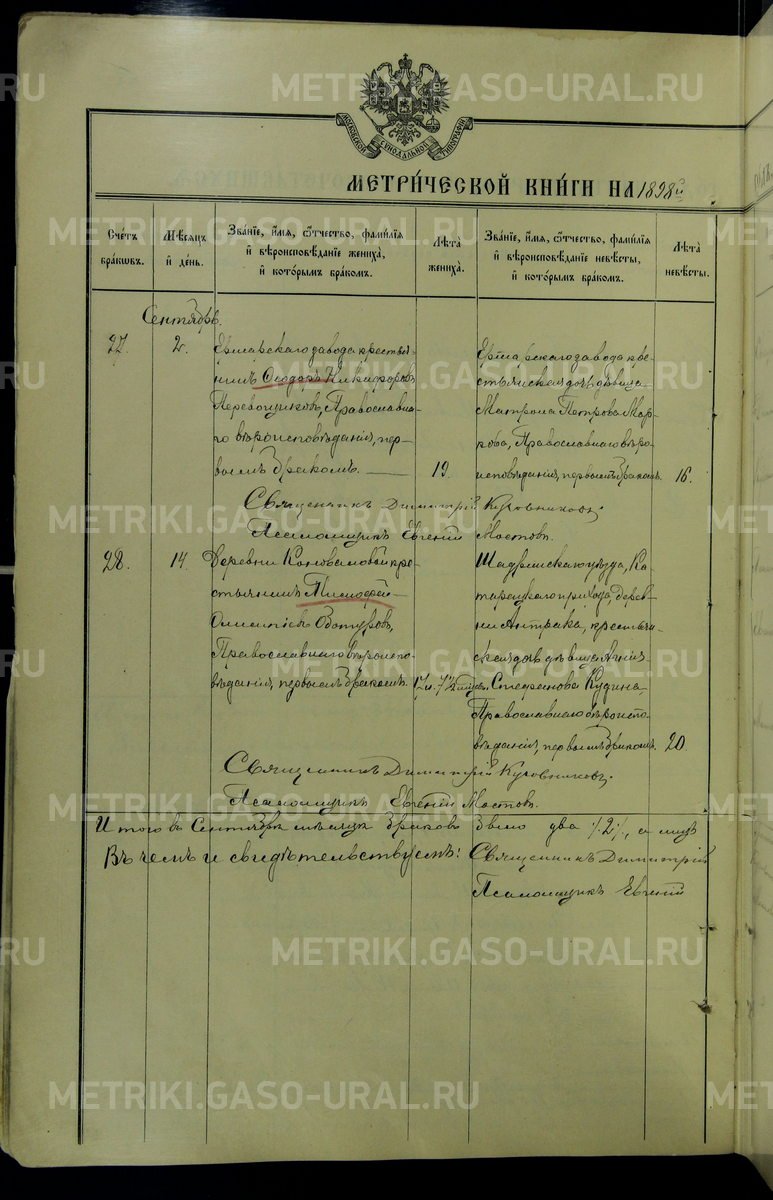 МОСКОВСКОЙ СѴНОДАЛЬНОЙ ТИПОГРАФІИ
МЕТРИ́ЧЕСКОЙ КНИ́ГИ НА 1898 й
Сче́тъ бра́кѡвъ.
Мѣ́сяцъ и҆ де́нь.
Зва́нїе, и҆́мя, ѻ҆́тчество, фами́лїя и҆ вѣроисповѣ́данїе жениха̀, и҆ кото́рымъ бра́комъ.
Лѣ́та жениха̀.
Зва́нїе, и҆́мя, ѻ҆́тчество, фами́лїя и҆ вѣроисповѣ́данїе невѣ́сты, и҆ кото́рымъ бра́комъ.
Лѣ́та невѣ́сты.
Сентябрь.
27.
2.
завода крестья-
нинъ Ѳеодоръ Никифоровъ
Перевощиковъ, Православна-
го вѣроисповѣданія, пер-
вымъ бракомъ.
19.
завода кре-
стьянская дочь, дѣвица
Матрона Петрова Мар-
кова, Православнаго вѣро-
исповѣданія, первымъ бракомъ.
16.
Священникъ Димитрій
Псаломщикъ Евгеній Мостовъ.
28.
14.
Деревни Коноваловой кре-
стьянинъ Тимоѳей
Православнаго вѣроиспо-
вѣданія, первымъ бракомъ.
17 л.
Шадринскаго уѣзда, Ка-
прихода, дерев-
ни крестьян-
ская дочь дѣвица
Стефанова Кудина,
Православнаго вѣроиспо-
вѣданія, первымъ бракомъ.
20.
Священникъ Димитрій
Псаломщикъ Евгеній Мостовъ.
Итого въ Сентябрѣ мѣсяцѣ браковъ было два /:2:/,
Въ чемъ и свидѣтельствуемъ: Священникъ Димитрій
Псаломщикъ Евгеній
METRIKI.GASO-URAL.RU